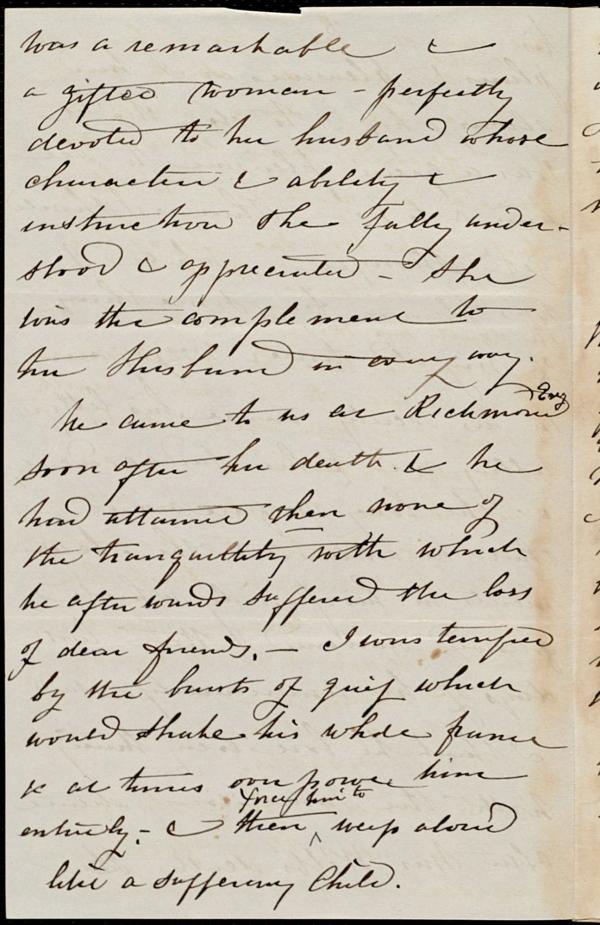 was a remarkable &
a gifted woman - perfectly
devoted to her husband whose
character & ability &
instruction she fully under-
stood & appreciated - She
was the complement to
her Husband in every way.
Eng
he came to us at Richmond
soon after her death. & he
had attained then none of
the tranquillity with which
he afterwards suffered the loss
of dear friends. - I was terrified
by the bursts of grief which
would shake his whole frame
& at times overpower him
force him to
entirely - & then ^ weep aloud
like a suffering Child.